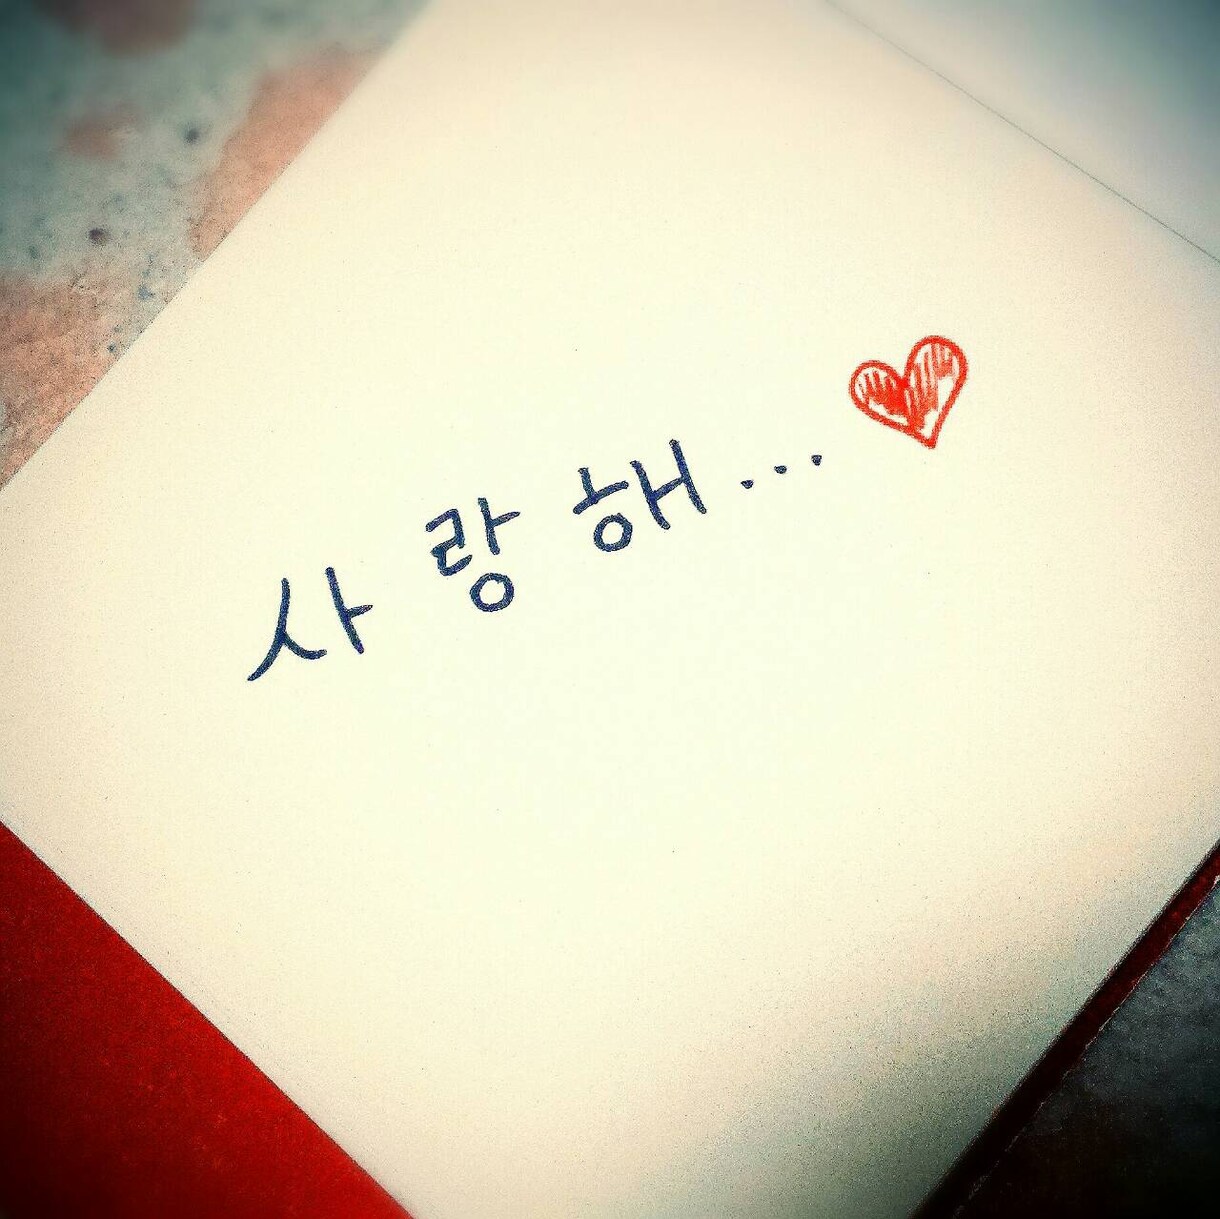 사랑해...